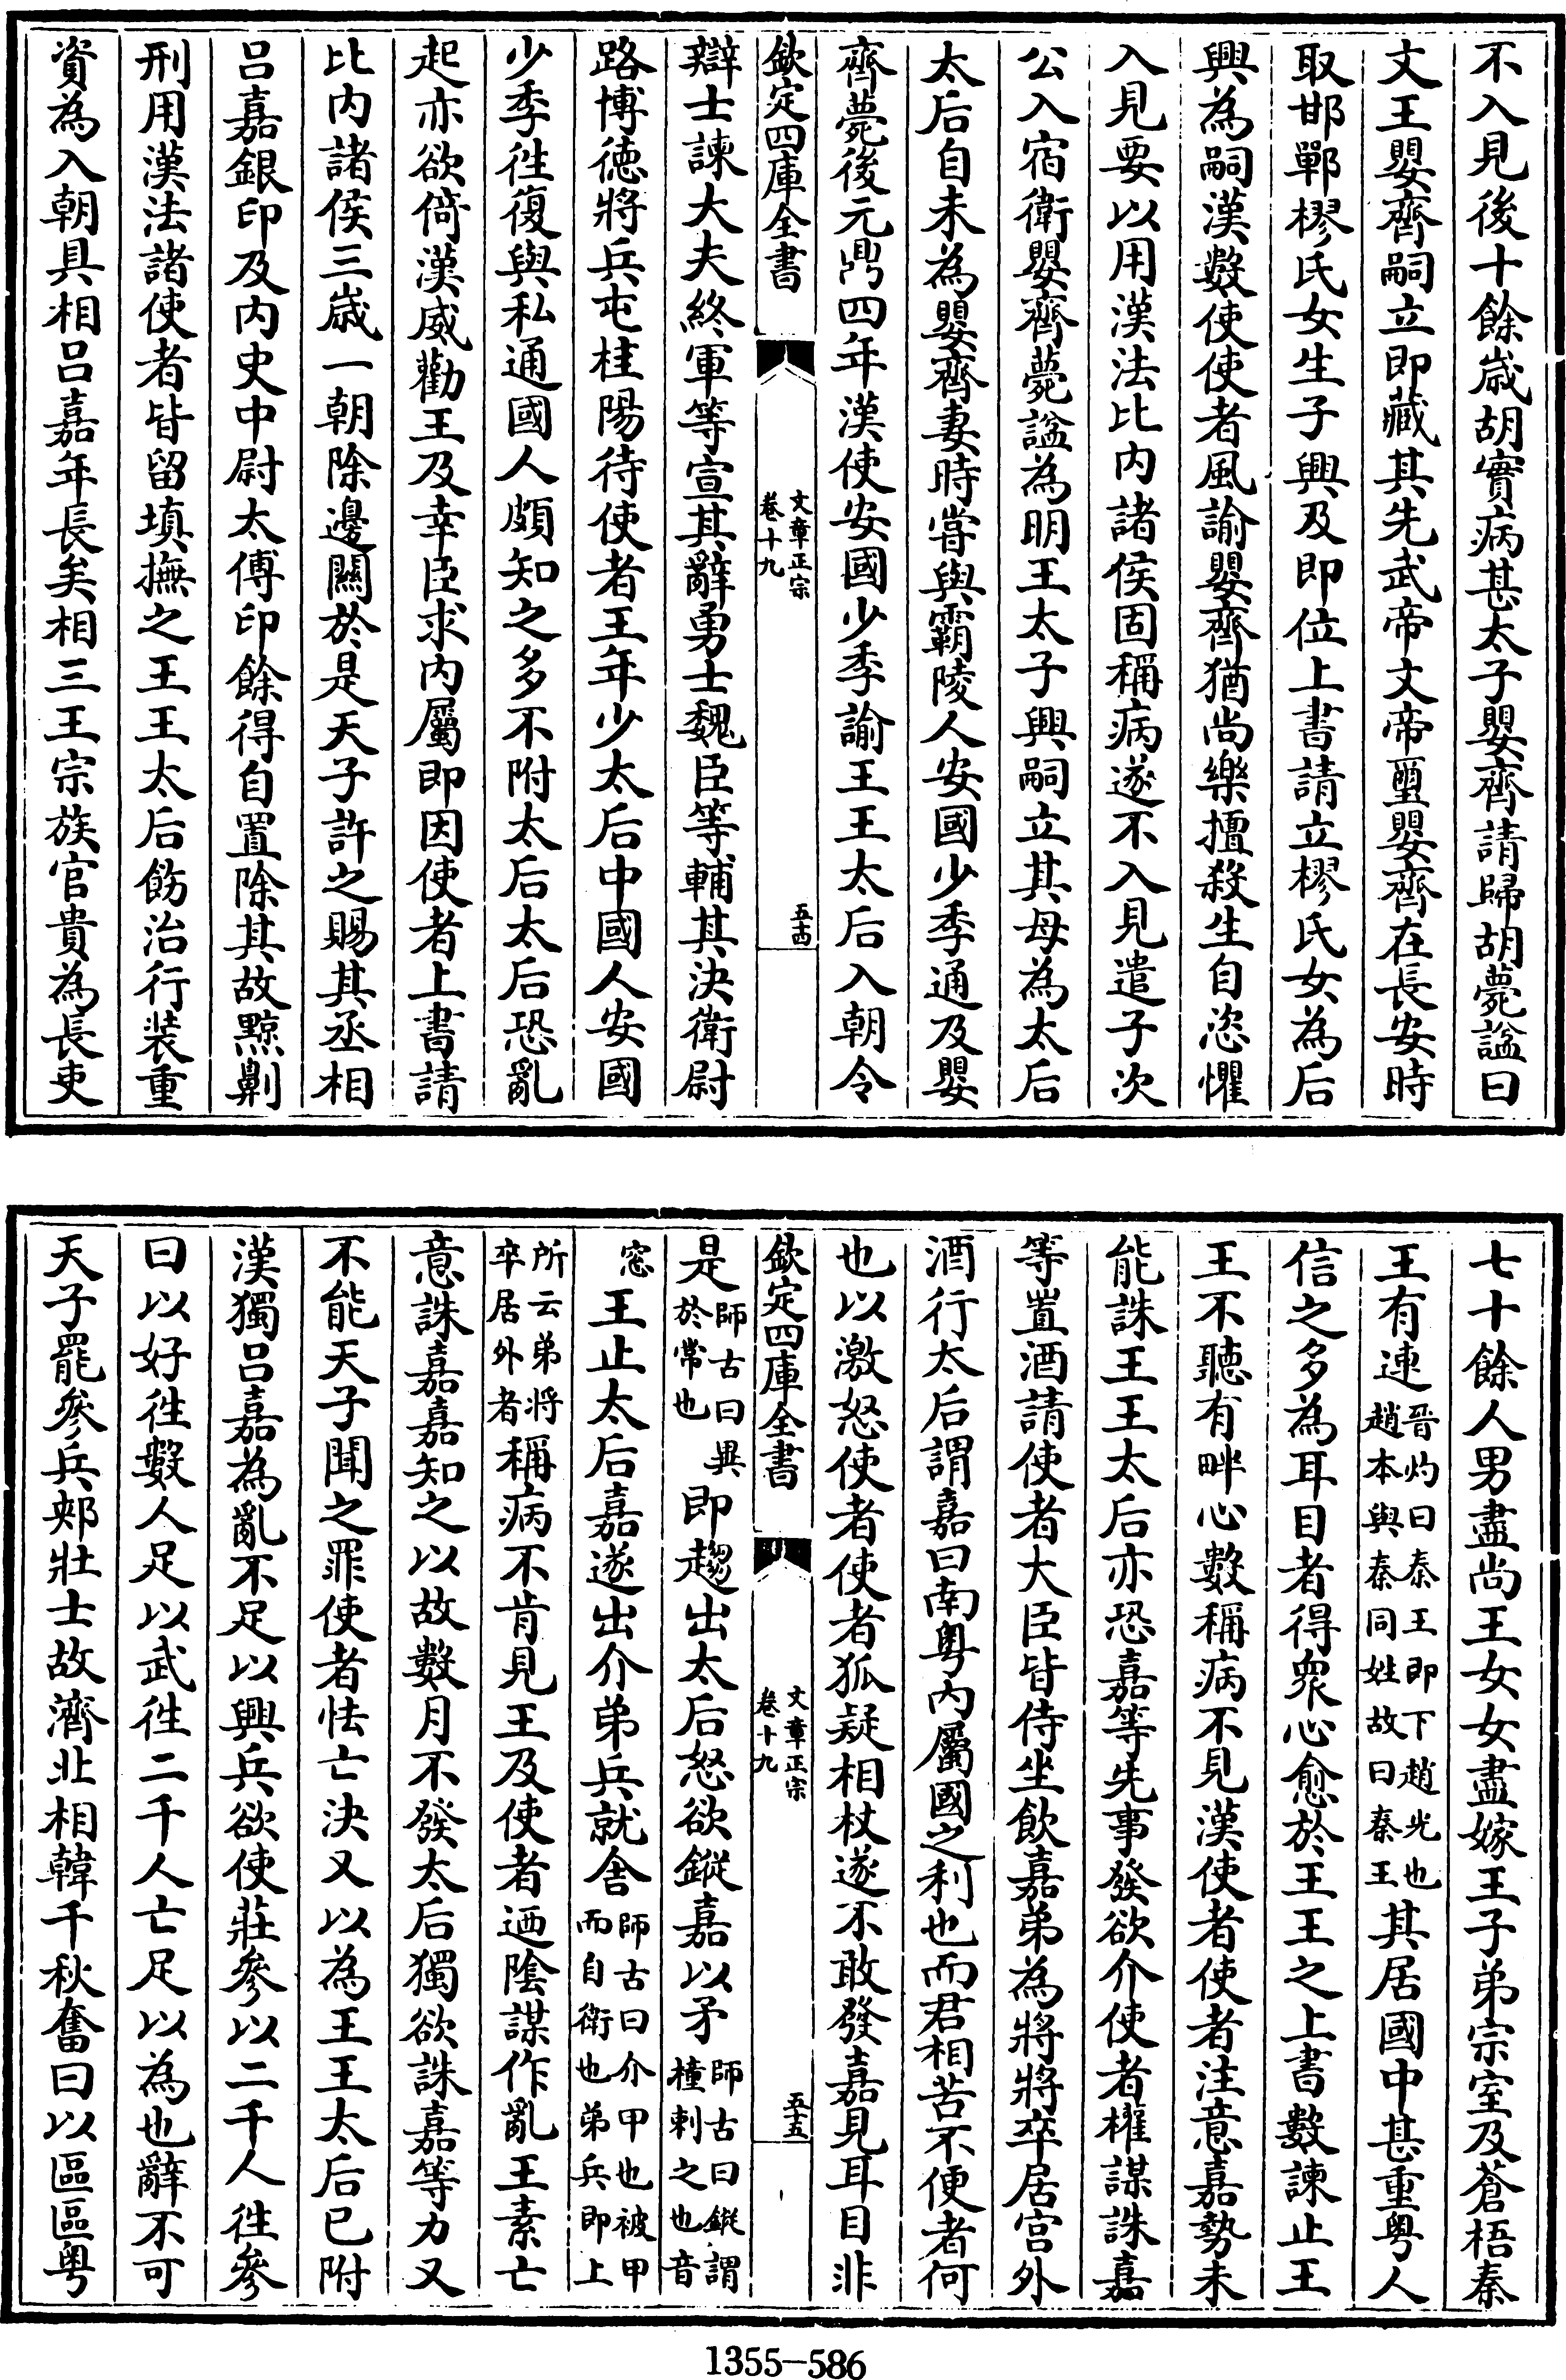 不入見後十餘歲胡實病甚太子嬰齊請歸胡薨諡曰
文王嬰齊嗣立即藏其先武帝文帝璽嬰齊在長安時
取邯鄲樛氏女生子興及即位上書請立樛氏女為后
興為嗣漢數使使者風諭嬰齊猶尚樂擅殺生自恣懼
入見要以用漢法比內諸侯固稱病遂不入見遣子次
公入宿衛嬰齊薨諡為明王太子興嗣立其母為太后
太后自未為嬰齊妻時甞與霸陵人安國少季通及嬰
齊薨後元鼎四年漢使安國少季諭王王太后入朝令
欽定四庫全書
文章正宗
卷十九
五十四
辯士諫大夫終軍等宣其辭勇士魏臣等輔其決衛尉
路博徳將兵屯桂陽待使者王年少太后中國人安國
少季徃復與私通國人頗知之多不附太后太后恐亂
起亦欲倚漢威勸王及幸臣求內屬即因使者上書請
比內諸侯三歲一朝除邊關於是天子許之賜其丞相
呂嘉銀印及內史中尉太傅印餘得自置除其故黥劓
刑用漢法諸使者皆留填撫之王王太后飭治行装重
資為入朝具相呂嘉年長矣相三王宗族官貴為長吏
七十餘人男盡尚王女女盡嫁王子弟宗室及蒼梧秦
王有連
晉灼曰秦王即下趙光也
趙本與秦同姓故曰秦王
其居國中甚重粤人
信之多為耳目者得衆心愈於王王之上書數諫止王
王不聽有畔心數稱病不見漢使者使者注意嘉勢未
能誅王王太后亦恐嘉等先事發欲介使者權謀誅嘉
等置酒請使者大臣皆侍坐飲嘉弟為將將卒居宫外
酒行太后謂嘉曰南粤內屬國之利也而君相苦不便者何
也以激怒使者使者狐疑相杖遂不敢發嘉見耳目非
欽定四庫全書
文章正宗
卷十九
五十五
是
師古曰異
於常也
即趨出太后怒欲鏦嘉以矛
師古曰鏦謂
撞刺之也音
窓
王止太后嘉遂出介弟兵就舍
師古曰介甲也被甲
而自衛也弟兵即上
所云弟将
卒居外者
稱病不肯見王及使者迺陰謀作亂王素亡
意誅嘉嘉知之以故數月不發太后獨欲誅嘉等力又
不能天子聞之罪使者怯亡決又以為王王太后已附
漢獨呂嘉為亂不足以興兵欲使莊參以二千人徃參
曰以好徃數人足以武徃二千人亡足以為也辭不可
天子罷參兵郟壯士故濟北相韓千秋奮曰以區區粤
1355-586